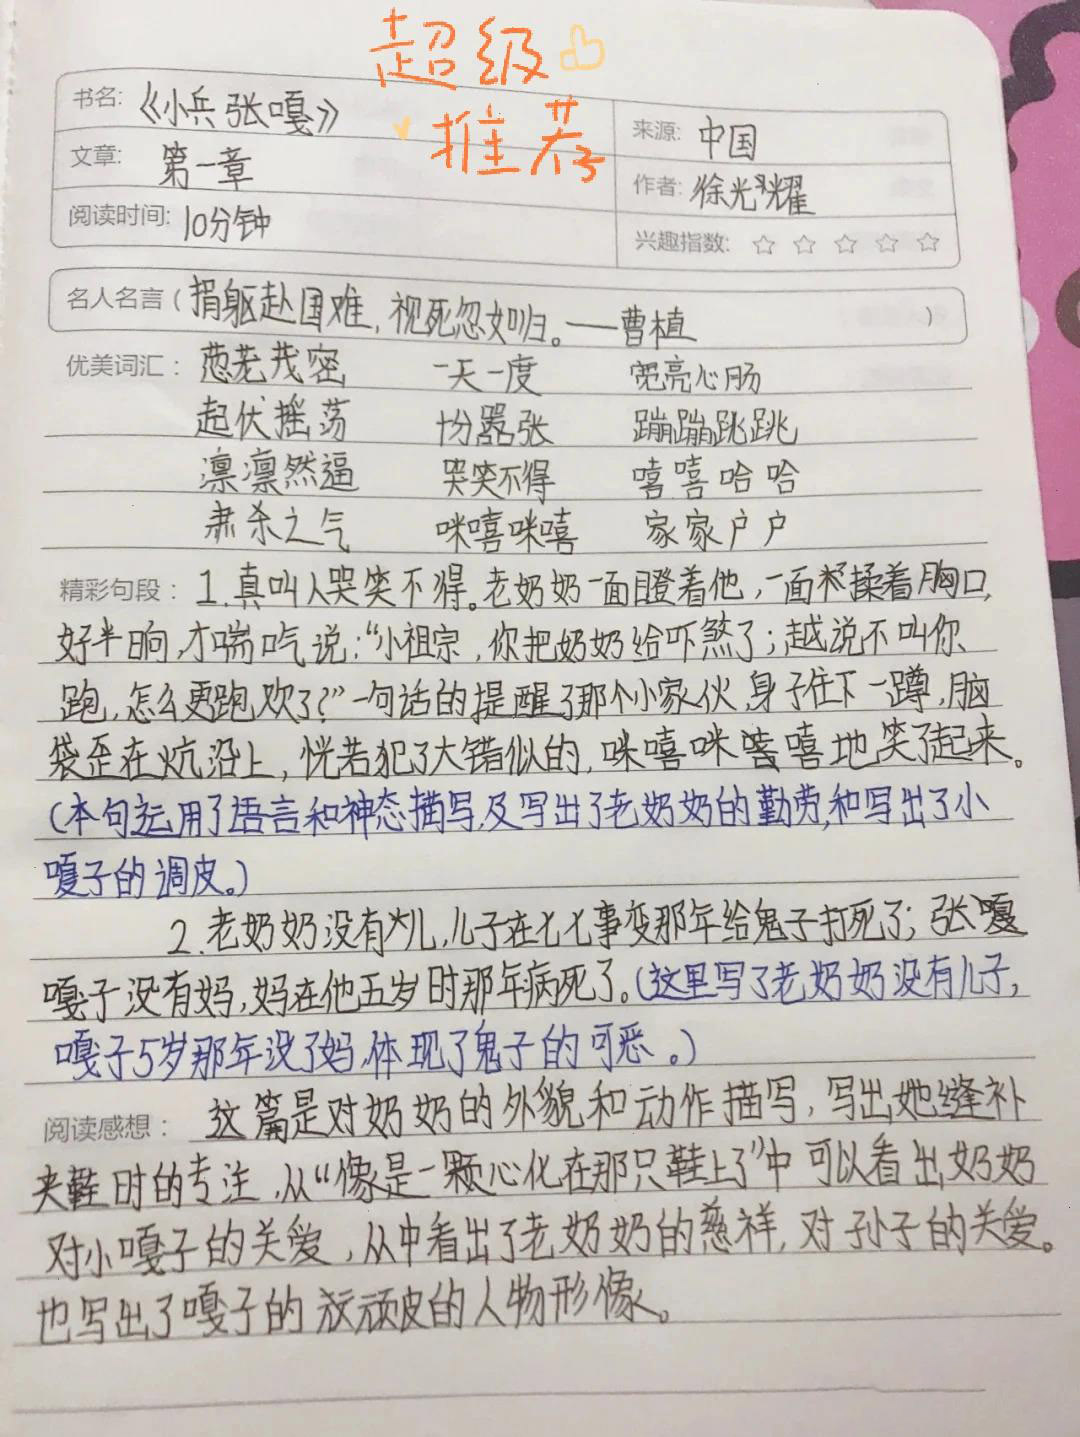 超级
推荐
书名: 《小兵张嘎》
来源: 中国
文章: 第一章
作者: 徐光耀
阅读时间: 10分钟
兴趣指数: ☆ ☆ ☆ ☆ ☆
名人名言 (捐躯赴国难,视死忽如归。——曹植 )
优美词汇: 葱茏茂密 一天一度 宽亮心肠
起伏摇荡 十分嚣张 蹦蹦跳跳
凛凛然逼 哭笑不得 嘻嘻哈哈
肃杀之气 咪嘻咪嘻 家家户户
精彩句段: 1.真叫人哭笑不得。老奶奶一面瞪着他,一面揉着胸口,
好半晌,才喘吃说:“小祖宗,你把奶奶给吓煞了;越说不叫你
跑,怎么更跑欢了?”一句话的提醒了那个小家伙,身子往下一蹲,脑
袋歪在炕沿上,恍若犯了大错似的,咪嘻咪嘻嘻地笑了起来。
(本句运用了语言和神态描写,及写出了老奶奶的勤劳,和写出了小
嘎子的调皮。)
2.老奶奶没有儿,儿子在七七事变那年给鬼子打死了;张嘎
嘎子没有妈,妈在他五岁时那年病死了。(这里写了老奶奶没有儿子,
嘎子5岁那年没了妈,体现了鬼子的可恶。)
阅读感想: 这篇是对奶奶的外貌和动作描写,写出她缝补
夹鞋时的专注,从“像是一颗心化在那只鞋上了”中可以看出奶奶
对小嘎子的关爱,从中看出了老奶奶的慈祥,对孙子的关爱。
也写出了嘎子的顽皮的人物形像。